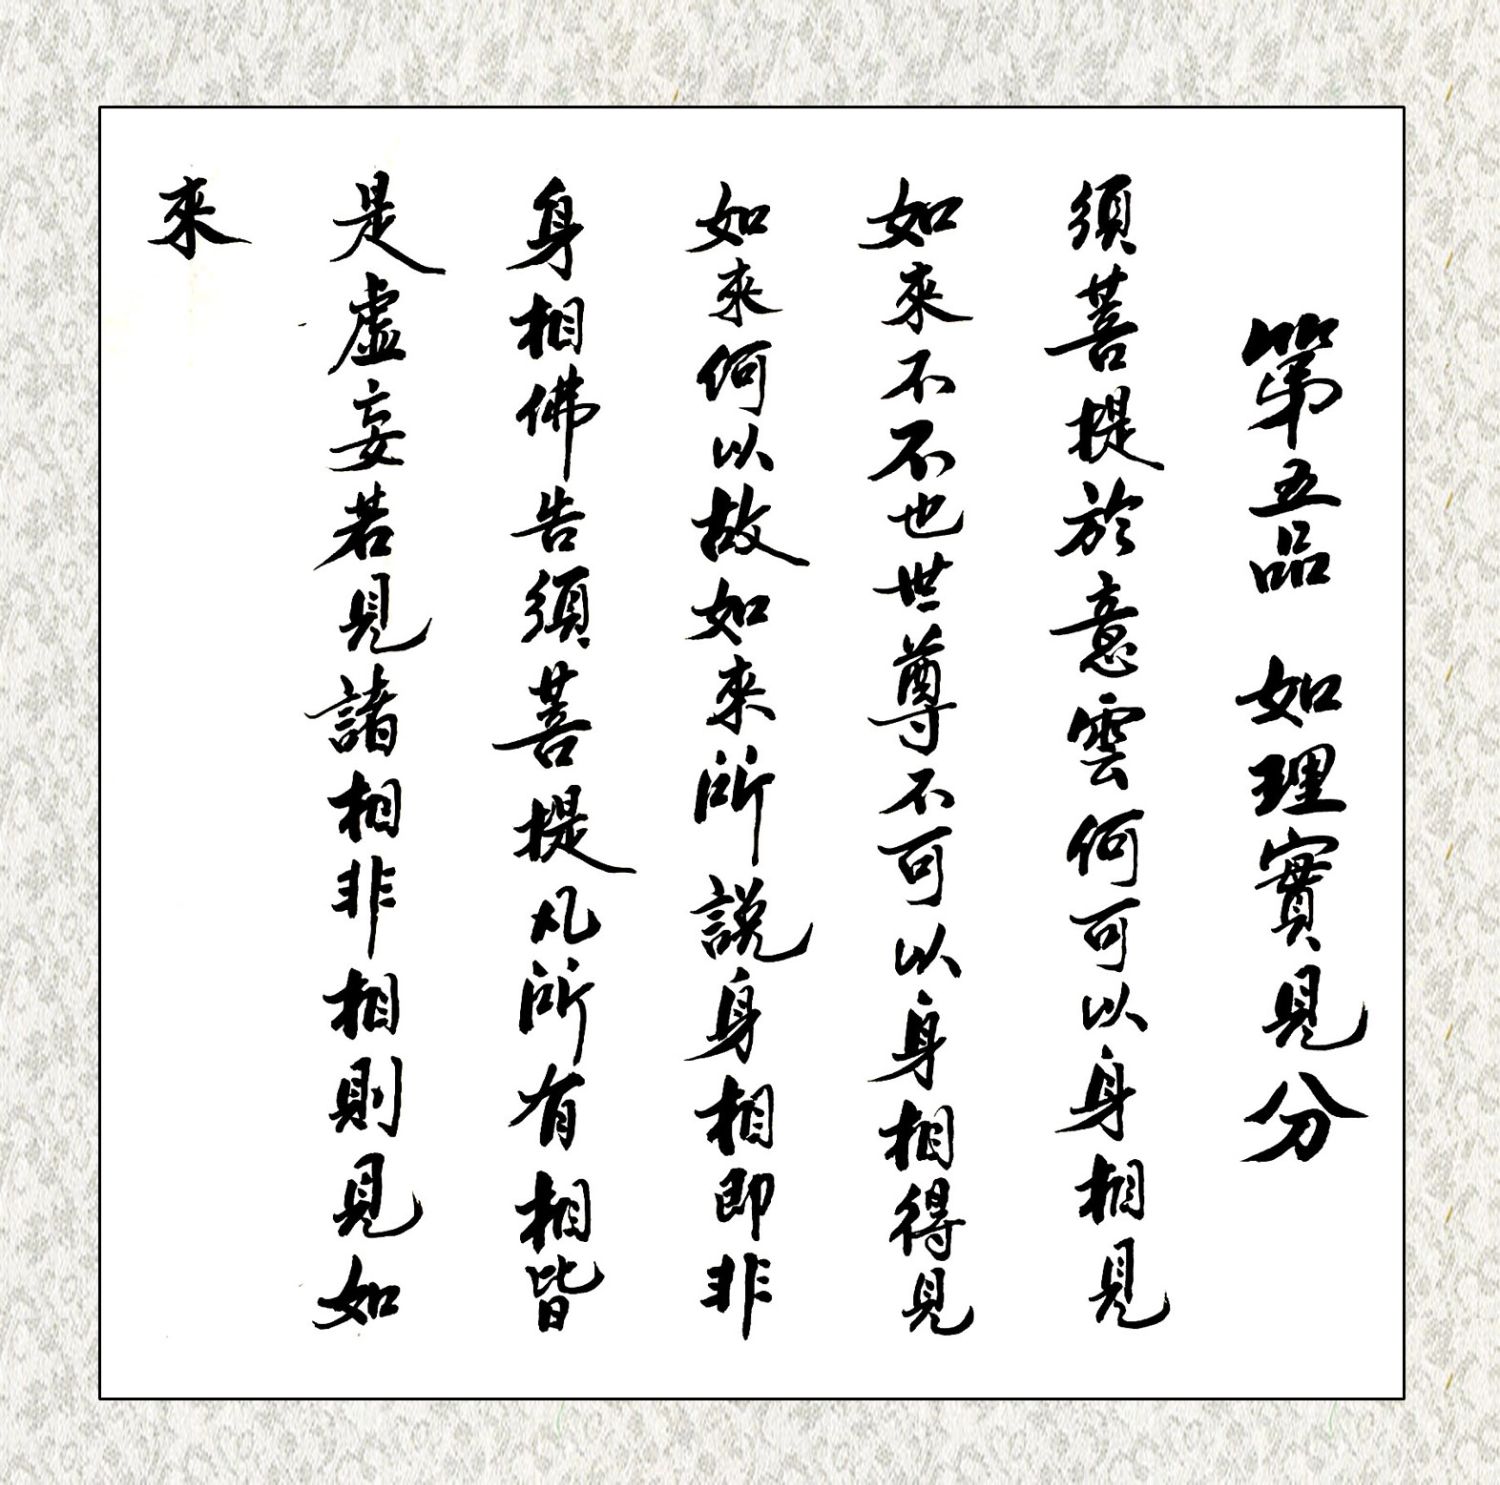 第五品 如理實見分
須菩提於意雲何可以身相見
如來不不也世尊不可以身相得見
如來何以故如來所説身相即非
身相佛告須菩提凡所有相皆
是虛妄若見諸相非相則見如
來